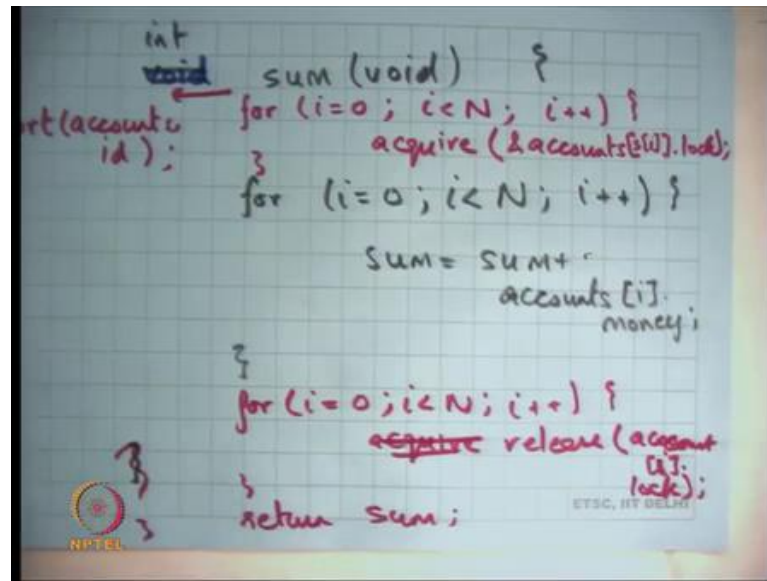 int
void sum (void) {
rt(account.
id);
for (i=0; i<N; i++) {
acquire (&accounts[s[i]].lock);
}
for (i=0; i<N; i++) {
sum = sum +
accounts [i].
money;
}
for (i=0; i<N; i++) {
acquire release (account
[i].
lock);
}
return sum;
}
}
NPTEL
ETSC, IIT DELHI